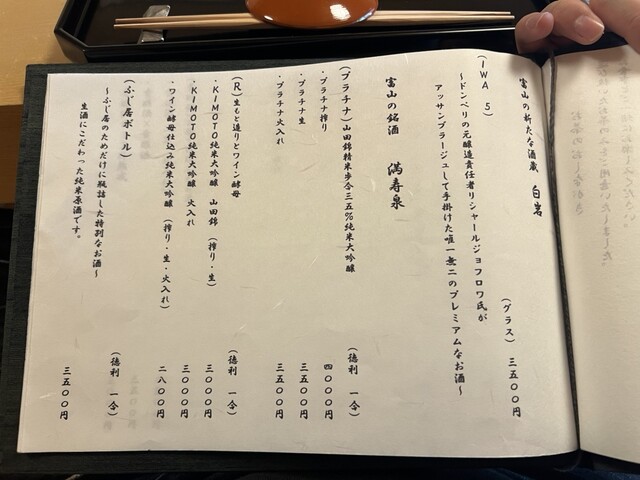 富山の新たな酒蔵　白岩
(グラス)　三五〇〇円
(IWA 5)
～ドンペリの元醸造責任者リシャールジョフロワ氏が
アッサンブラージュして手掛けた唯一無二のプレミアムなお酒～
富山の銘酒　満寿泉
(プラチナ)山田錦精米歩合三五%純米大吟醸
(徳利　一合)
・プラチナ搾り　四〇〇〇円
・プラチナ生　三五〇〇円
・プラチナ火入れ　三五〇〇円
(R)生もと造りとワイン酵母
(徳利　一合)
・KIMOTO純米大吟醸　山田錦　(搾り・生)　三〇〇〇円
・KIMOTO純米大吟醸　火入れ　三〇〇〇円
・ワイン酵母仕込み純米大吟醸　(搾り・生・火入れ)　二八〇〇円
(ふじ居ボトル)
(徳利　一合)
～ふじ居のためだけに瓶詰した特別なお酒～
生酒にこだわった純米原酒です。　三五〇〇円